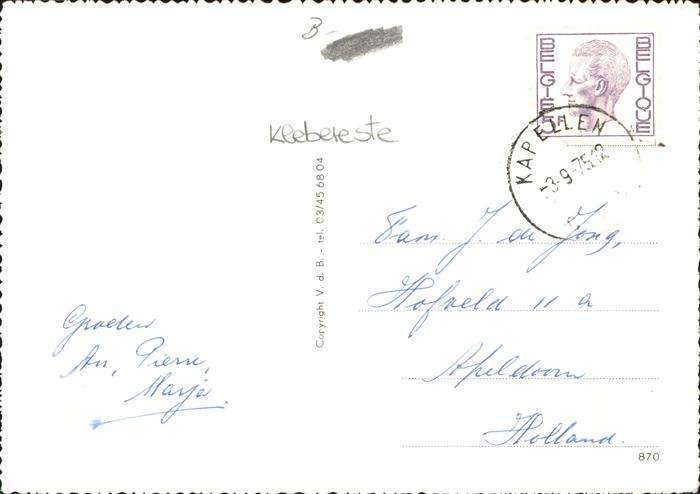 B-
BELGIE 5F BELGIQUE
KAPELLEN
-3-9-75 12
Klebereste
Copyright V. d. B. - tel. 03/45 68 04
Fam. J. de Jong,
Hofveld 11 a
Apeldoorn
Holland.
Groeten
An, Pierre,
Marja.
870